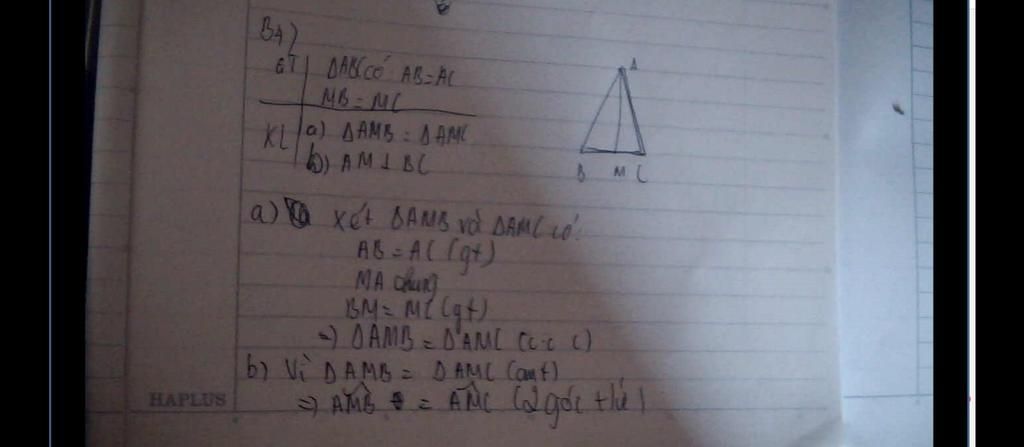 B4)
GT ΔABC có AB = AC
MB = MC
KL a) ΔAMB = ΔAMC
b) AM ⊥ BC
A
B M C
a) Xét ΔAMB và ΔAMC có:
AB = AC (gt)
MA chung
BM = MC (gt)
=) ΔAMB = ΔAMC (c.c.c)
b) Vì ΔAMB = ΔAMC (cmt)
=) AMB = AMC (2 góc
HAPLUS